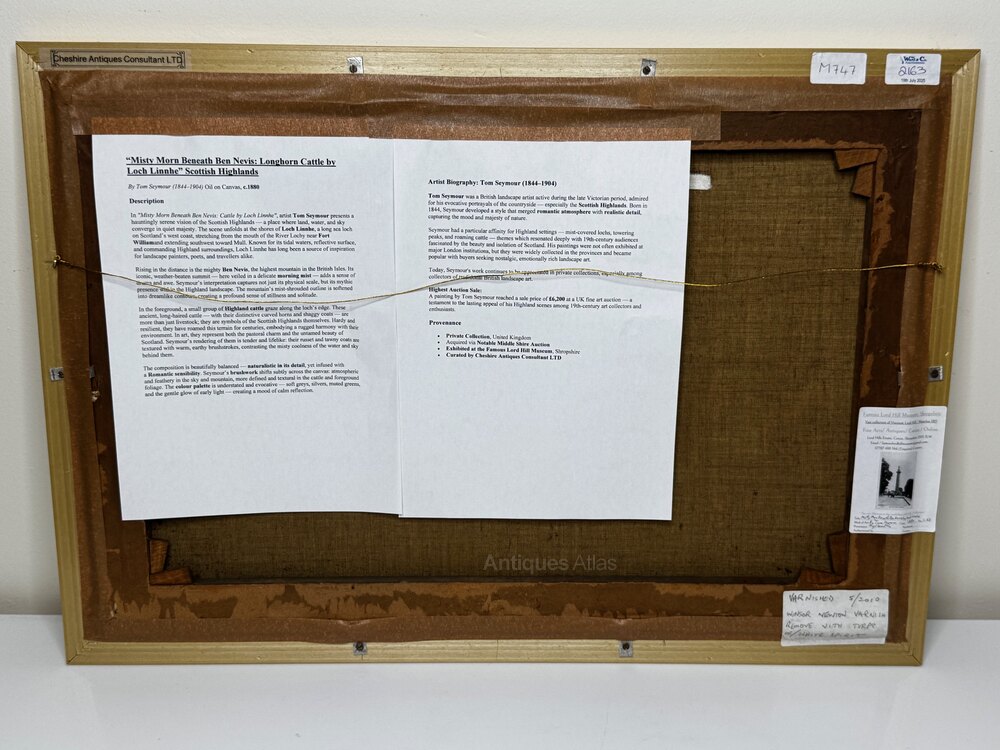 Cheshire Antiques Consultant LTD
M747
2163
19th July 2025
"Misty Morn Beneath Ben Nevis: Longhorn Cattle by
Loch Linnhe" Scottish Highlands
By Tom Seymour (1844–1904) Oil on Canvas, c.1880
Description
In "Misty Morn Beneath Ben Nevis: Cattle by Loch Linnhe", artist Tom Seymour presents a
hauntingly serene vision of the Scottish Highlands — a place where land, water, and sky
converge in quiet majesty. The scene unfolds at the shores of Loch Linnhe, a long sea loch
on Scotland's west coast, stretching from the mouth of the River Lochy near Fort
Williamand extending southwest toward Mull. Known for its tidal waters, reflective surface,
and commanding Highland surroundings, Loch Linnhe has long been a source of inspiration
for landscape painters, poets, and travellers alike.
Rising in the distance is the mighty Ben Nevis, the highest mountain in the British Isles. Its
iconic, weather-beaten summit — here veiled in a delicate morning mist — adds a sense of
drama and awe. Seymour's interpretation captures not just its physical scale, but its mythic
presence within the Highland landscape. The mountain's mist-shrouded outline is softened
into dreamlike contours, creating a profound sense of stillness and solitude.
In the foreground, a small group of Highland cattle graze along the loch's edge. These
ancient, long-haired cattle — with their distinctive curved horns and shaggy coats — are
more than just livestock; they are symbols of the Scottish Highlands themselves. Hardy and
resilient, they have roamed this terrain for centuries, embodying a rugged harmony with their
environment. In art, they represent both the pastoral charm and the untamed beauty of
Scotland. Seymour's rendering of them is tender and lifelike: their russet and tawny coats are
textured with warm, earthy brushstrokes, contrasting the misty coolness of the water and sky
behind them.
The composition is beautifully balanced — naturalistic in its detail, yet infused with
a Romantic sensibility. Seymour's brushwork shifts subtly across the canvas: atmospheric
and feathery in the sky and mountain, more defined and textural in the cattle and foreground
foliage. The colour palette is understated and evocative — soft greys, silvers, muted greens,
and the gentle glow of early light — creating a mood of calm reflection.
Artist Biography: Tom Seymour (1844–1904)
Tom Seymour was a British landscape artist active during the late Victorian period, admired
for his evocative portrayals of the countryside — especially the Scottish Highlands. Born in
1844, Seymour developed a style that merged romantic atmosphere with realistic detail,
capturing the mood and majesty of nature.
Seymour had a particular affinity for Highland settings — mist-covered lochs, towering
peaks, and roaming cattle — themes which resonated deeply with 19th-century audiences
fascinated by the beauty and isolation of Scotland. His paintings were not often exhibited at
major London institutions, but they were widely collected in the provinces and became
popular with buyers seeking nostalgic, emotionally rich landscape art.
Today, Seymour's work continues to be appreciated in private collections, especially among
collectors of traditional British landscape art.
Highest Auction Sale:
A painting by Tom Seymour reached a sale price of £6,200 at a UK fine art auction — a
testament to the lasting appeal of his Highland scenes among 19th-century art collectors and
enthusiasts.
Provenance
• Private Collection, United Kingdom
• Acquired via Notable Middle Shire Auction
• Exhibited at the Famous Lord Hill Museum, Shropshire
• Curated by Cheshire Antiques Consultant LTD
Famous Lord Hill Museum, Shropshire
Fine Arts / Antiques / Curios / Clocks
Antiques Atlas
VARNISHED 5/2010
WINSOR NEWTON VARNISH
REMOVE WITH TURPS
OR/WHITE SPIRIT